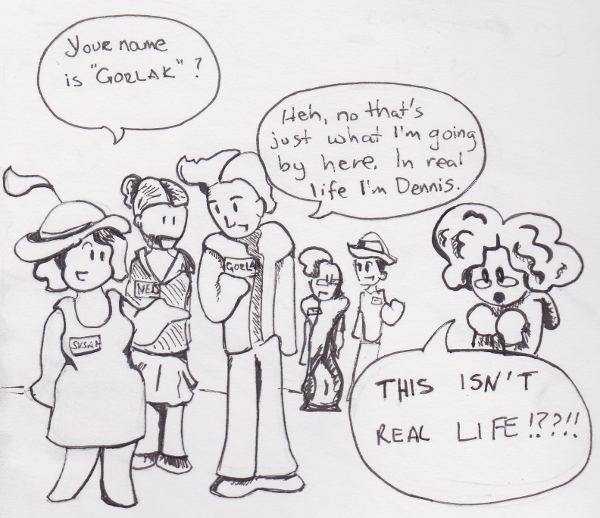 Your name
is "Gorlak"?
Heh, no that's
just what I'm going
by here. In real
life I'm Dennis.
GORLA
SUSAN
THIS ISN'T
REAL LIFE!??!!